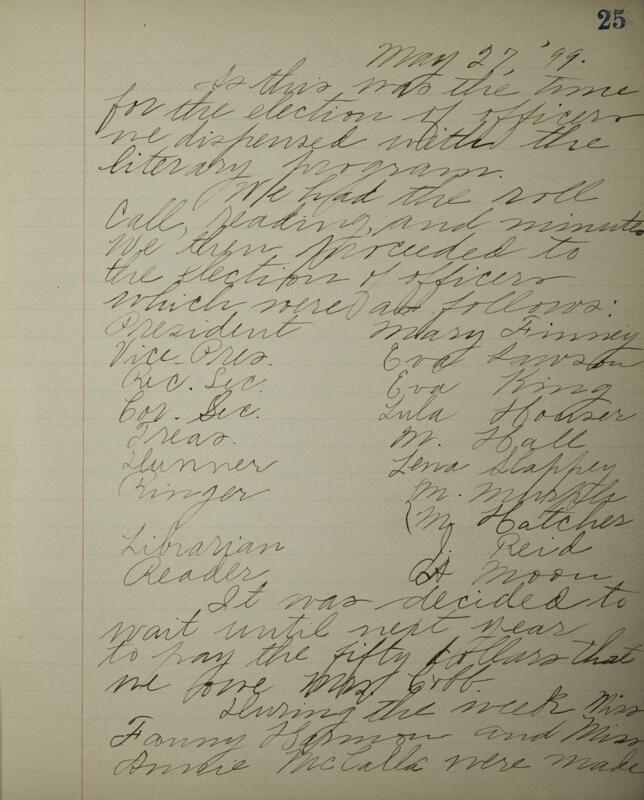 25
May 27, '99.
As this was the time
for the election of officers
we dispensed with the
literary program.
We had the roll
call, reading, and minutes
We then proceeded to
the election of officers
which were as follows:
President Mary Finney
Vice Pres. Eva Lawson
Rec. Sec. Eva King
Cor. Sec. Lula Houser
Treas. M. Hall
Dunner Lena Slappey
Ringer M. Murph
M. Hatcher
Librarian J. Reid
Reader A Moon
It was decided to
wait until next year
to pay the fifty dollars that
we owe Mrs. Cobb.
During the week Miss
Fanny Harmon and Miss
Annie McCalla were made